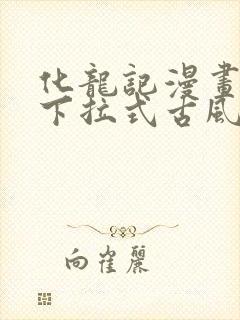 化龍記漫畫
下拉式古風
向崔麗